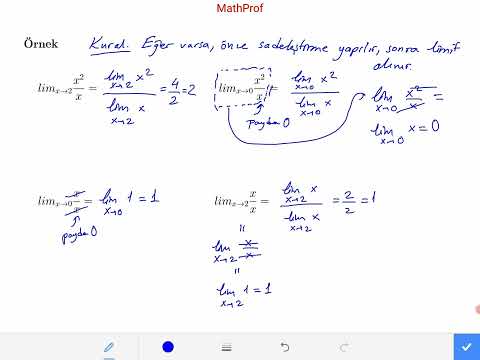 MathProf
Örnek Kural. Eğer varsa, önce sadeleştirme yapılır, sonra limit
alınır.
lim_{x→2} x²/x = lim_{x→2} x² / lim_{x→2} x = 4/2 = 2
lim_{x→0} x²/x = lim_{x→0} x² / lim_{x→0} x
payda 0
lim_{x→0} x²/x =
lim_{x→0} x = 0
lim_{x→0} x/x = lim_{x→0} 1 = 1
payda 0
lim_{x→2} x/x = lim_{x→2} x / lim_{x→2} x = 2/2 = 1
=
lim_{x→2} x/x
=
lim_{x→2} 1 = 1